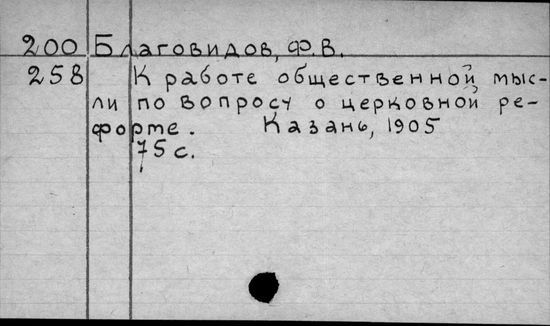 200 Благовидов, Ф.В.
258 К работе общественной мыс-
ли по вопросу о церковной ре-
форме. Казань, 1905
75 с.